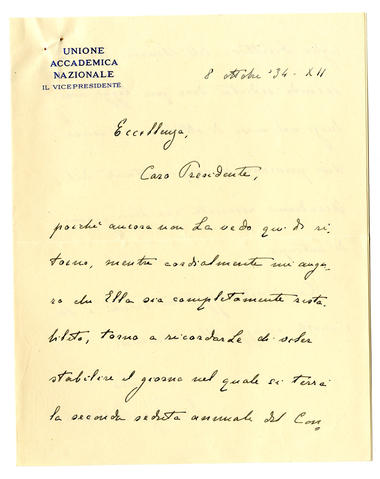 UNIONE
ACCADEMICA
NAZIONALE
IL VICEPRESIDENTE
8 ottobre '34 - XII
Eccellenza,
Caro Presidente,
poichè ancora non La vedo qui di ri,
torno, mentre cordialmente mi augu,
ro che Ella sia completamente rista,
bilito, torno a ricordarLe di voler
stabilire il giorno nel quale si terrà
la seconda seduta annuale del Con,